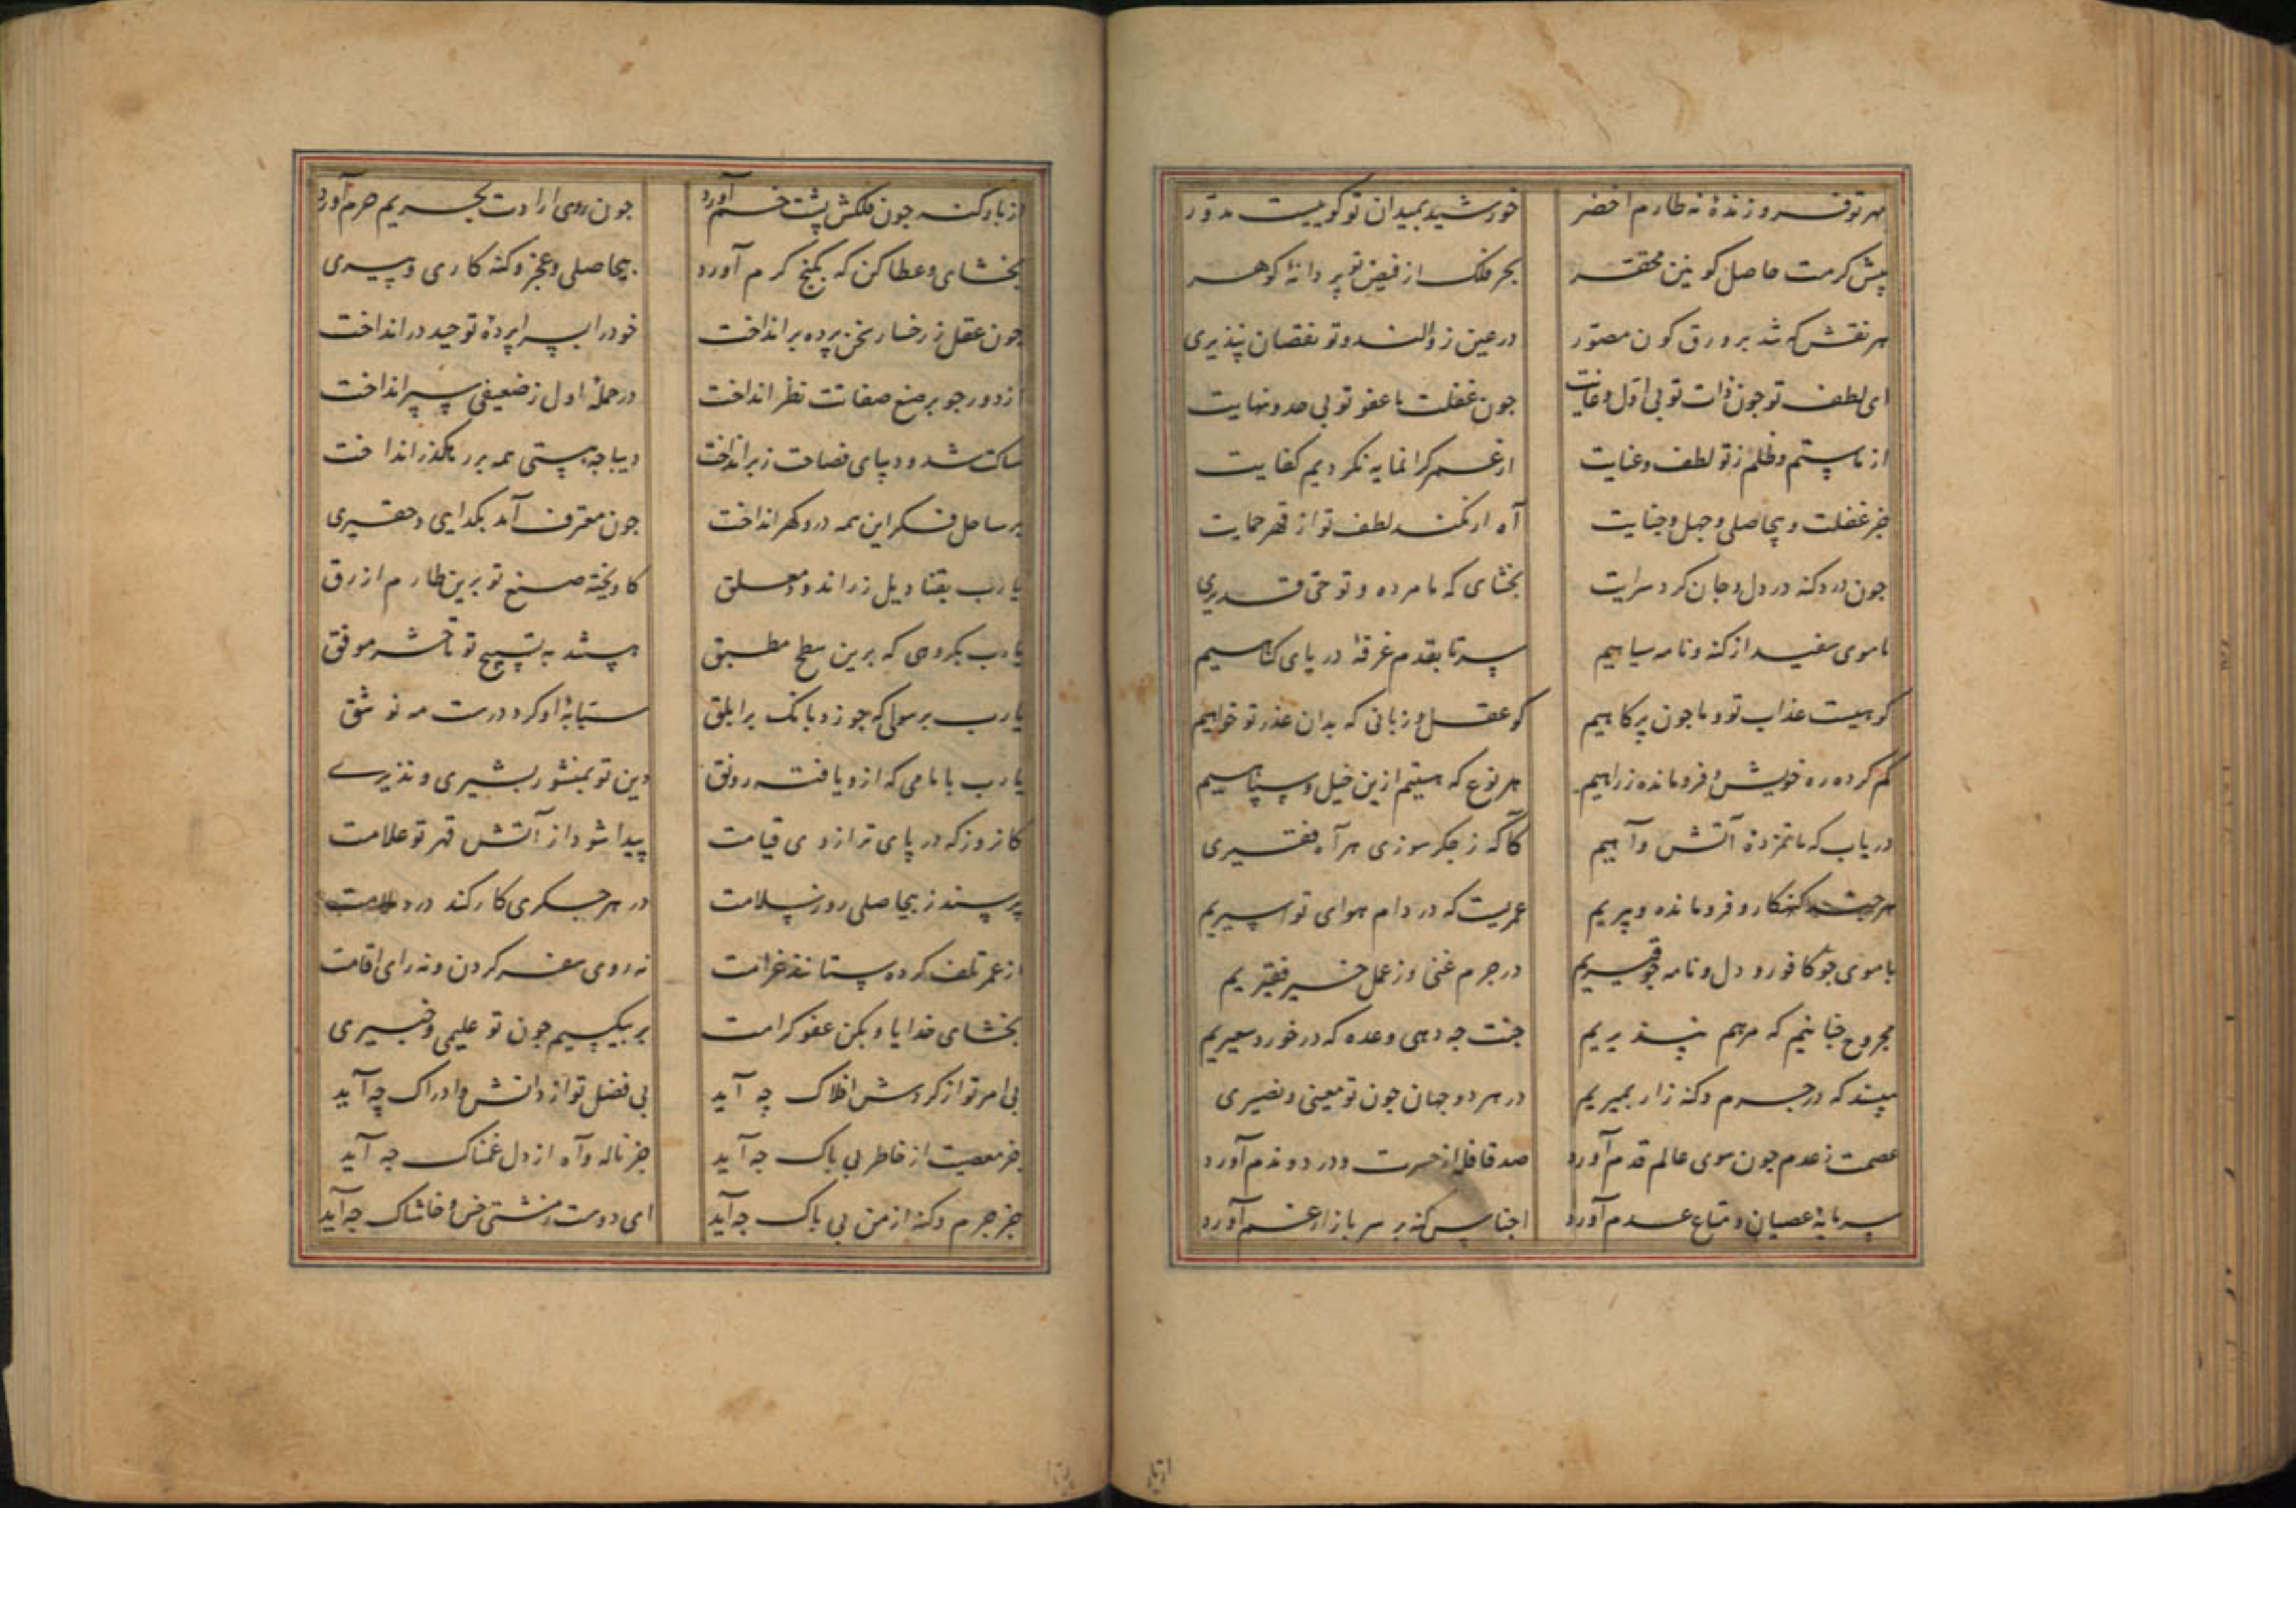 مهر تو فروزندهٔ نه طارم اخضر خورشید بمیدان تو کوییست مدوّر
پیش کرمت حاصل کونین محقّر بحر فلک از فیض تو پر دانهٔ کوهر
هر نقش که شد بر ورق کون مصوّر در عین زوالند و تو نقصان نپذیری
ای لطف تو جون ذات تو بی اوّل و غایت جون غفلت ما عفو تو بی حد و نهایت
از ما ستم و ظلم ز تو لطف و عنایت از عمر کرانمایه نکردیم کفایت
جز غفلت و بیحاصلی و جهل و جنایت آه ار نکند لطف تو از قهر حمایت
جون درد کنه در دل و جان کرد سرایت بخشای که ما مرده و تو حیّ قدیری
با موی سفید از کنه و نامه سیاهیم سر تا بقدم غرقهٔ دریای کناهیم
کوهیست عذاب تو و ما جون پر کاهیم کو عقل و زبانی که بدان عذر تو خواهیم
کم کرده ره خویش و فرومانده ز راهیم هر نوع که هستیم ازین خیل و سپاهیم
دریاب که ماتمزدهٔ آتش و آهیم کآکه ز جکر سوزی هر آه فقیری
هر جند کنهکار و فرومانده و پیریم عمریست که در دام هوای تو اسیریم
با موی جو کافور و دل و نامه جو قیریم در جرم غنی وز عمل خیر فقیریم
مجروح جنانیم که مرهم نپذیریم جنت جه دهی وعده که در خورد سعیریم
مپسند که در جرم و کنه زار بمیریم در هر دو جهان جون تو معینی و نصیری
عصمت ز عدم جون سوی عالم قدم آورد صد قافله از حسرت و درد و ندم آورد
سرمایهٔ عصیان و متاع عدم آورد اجناس کنه بر سر بازار غم آورد
از بار کنه جون فلکش پشت خم آورد جون روی ارادت بحریم حرم آورد
بخشای و عطا کن که بکنج کرم آورد بیحاصلی و عجز و کنه کاری و پیری
جون عقل ز رخسار سخن پرده برانداخت خود را بسراپردهٔ توحید درانداخت
از دور جو بر صنع صفاتت نظر انداخت در حملهٔ اول ز ضعیفی سپر انداخت
ساکت شد و دیبای فصاحت ز بر انداخت دیباجهٔ هستی همه بر رهکذر انداخت
بر ساحل فکر این همه در و کهر انداخت جون معترف آمد بکدایی و حقیری
یا رب بقنادیل زراندود معلق کاویخته صنع تو برین طارم ازرق
یا رب بکروهی که برین سطح مطبق هستند به تسبیح تو تا حشر موفق
یا رب برسولی که جو زد بانک بر ابلق سبّابهٔ او کرد درست مه نو شق
یا رب بامامی که ازو یافته رونق دین تو بمنشور بشیری و نذیری
کانروز که در پای ترازوی قیامت پیدا شود از آتش قهر تو علامت
پرسند ز بیحاصلی روز سلامت در هر جکری کار کند درد ملامت
از عمر تلف کرده ستانند غرامت نه روی سفر کردن و نه رای اقامت
بخشای خدایا و بکن عفو کرامت بر بیکسیم جون تو علیمی و خبیری
بی امر تو از کردش افلاک چه آید بی فضل تو از دانش و ادراک چه آید
جز معصیت از خاطر بی باک جه آید جز ناله و آه از دل غمناک جه آید
جز جرم و کنه از من بی باک جه آید ای دوست ز مشتی خس و خاشاک جه آید